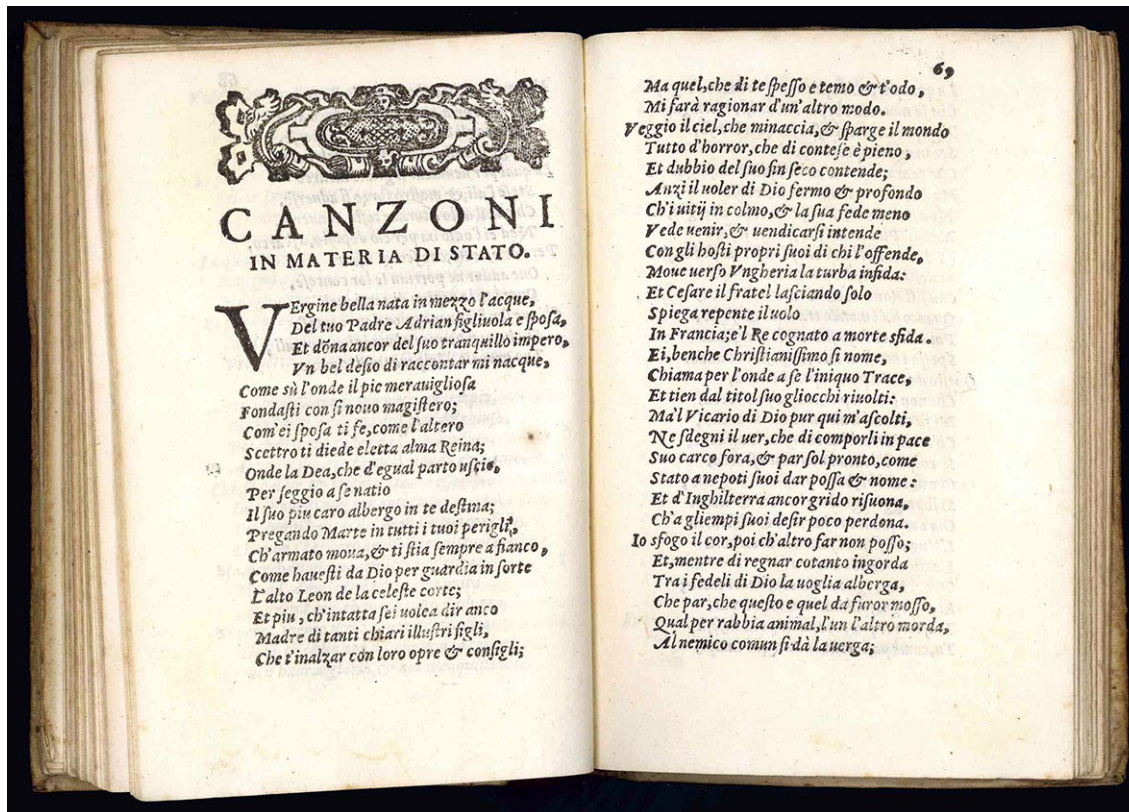 CANZONI
IN MATERIA DI STATO.
VErgine bella nata in mezzo l'acque,
Del tuo Padre Adrian figliuola e sposa,
Et dõna ancor del suo tranquillo impero,
Vn bel desio di raccontar mi nacque,
Come sù l'onde il pie merauigliosa
Fondasti con si nouo magistero;
Com'ei sposa ti fe, come l'altero
Scettro ti diede eletta alma Reina;
Onde la Dea, che d'egual parto uscio,
Per seggio a se natio
Il suo piu caro albergo in te destina;
Pregando Marte in tutti i tuoi perigli,
Ch'armato moua, & ti stia sempre a fianco,
Come hauesti da Dio per guardia in sorte
L'alto Leon de la celeste corte;
Et piu, ch'intatta sei uolea dir anco
Madre di tanti chiari illustri figli,
Che t'inalzar con loro opre & consigli;
69
Ma quel, che di te spesso e temo & t'odo,
Mi farà ragionar d'un'altro modo.
Veggio il ciel, che minaccia, & sparge il mondo
Tutto d'horror, che di contese è pieno,
Et dubbio del suo fin seco contende;
Anzi il uoler di Dio fermo & profondo
Ch'i uitij in colmo, & la sua fede meno
Vede uenir, & uendicarsi intende
Con gli hosti propri suoi di chi l'offende,
Moue uerso Vngheria la turba infida:
Et Cesare il fratel lasciando solo
Spiega repente il uolo
In Francia; e'l Re cognato a morte sfida.
Ei, benche Christianissimo si nome,
Chiama per l'onde a se l'iniquo Trace,
Et tien dal titol suo gliocchi riuolti:
Ma'l Vicario di Dio pur qui m'ascolti,
Ne sdegni il uer, che di comporli in pace
Suo carco fora, & par sol pronto, come
Stato a nepoti suoi dar possa & nome:
Et d'Inghilterra ancor grido risuona,
Ch'a gliempi suoi desir poco perdona.
Io sfogo il cor, poi ch'altro far non posso;
Et, mentre di regnar cotanto ingorda
Tra i fedeli di Dio la uoglia alberga,
Che par, che questo e quel da furor mosso,
Qual per rabbia animal, l'un l'altro morda,
Al nemico comun si dà la uerga;